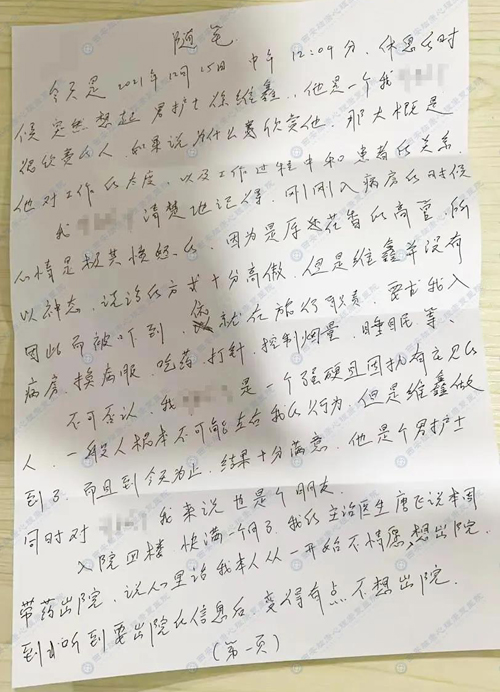 随笔
今天是2021年12月25日 中午12:09分，休息的时
候突然想起男护士徐维鑫，他是一个我
很欣赏的人，如果说为什么喜欣赏他，那大概是
他对工作的态度，以及工作过程中和患者的关系。
我 清楚地记得，刚刚入病房的时候
心情是极其懊恼的，因为是 的高官，所
以神态、说话的方式十分高傲，但是维鑫并没有
因此而被吓到，就在旅行职责，要求我入
病房、换病服、吃药、打针、控制烟量、睡眠等、
不可否认，我 是一个强硬且固执有主见的
人，一般人根本不可能左右我的行为，但是维鑫做
到了，而且到今天为止，结果十分满意，他是个男护士
同时对 我来说也是个朋友
入院四楼快满一个月了，我的主治医生唐飞说本周
带药出院，说心里话我本人从一开始不情愿，想出院，
到听到要出院的信息后，变得有点不想出院。
（第一页）